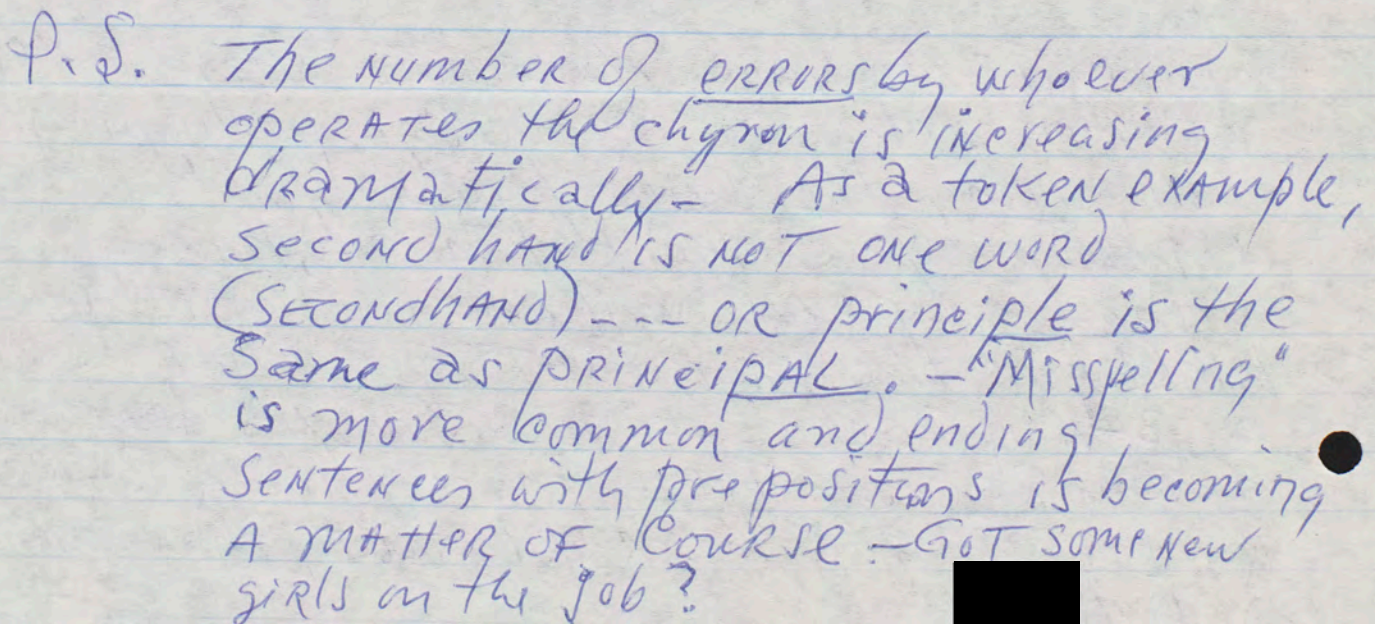 P.S. The number of errors by whoever
operates the chyron is increasing
dramatically - As a token example,
second hand is NOT ONE WORD
(SECONDHAND) --- OR principle is the
Same as PRINCIPAL. - "Misspelling"
is more common and ending
sentences with prepositions is becoming
A MATTER OF COURSE - GOT some New
girls on the job?